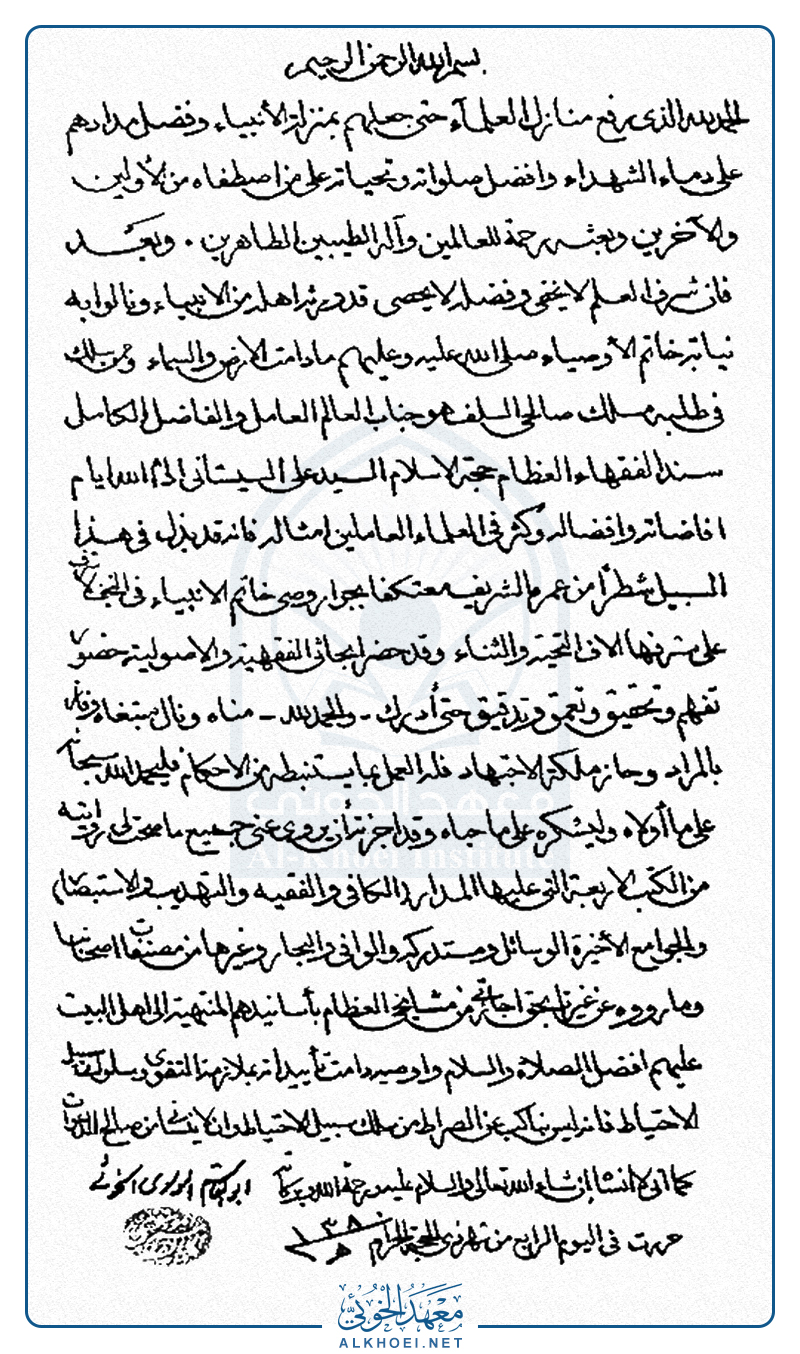 بسم الله الرحمن الرحيم
الحمد لله الذي رفع منازل العلمآء حتى جعلهم بمنزلة الأنبياء وفضل مدادهم
على دماء الشهداء وافضل صلواته وتحياته على من اصطفاه من الأولين
والآخرين وبعثه رحمة للعالمين وآله الطيبين الطاهرين . وبَعْد
فان شرف العلم لا يخفى وفضله لا يحصى قد ورثه اهله من الانبياء ونالوا به
نيابة خاتم الأوصياء صلى الله عليه وعليهم ما دامت الارض والسماء وممن سلك
في طلبه مسلك صالحي السلف هو جناب العالم العامل والفاضل الكامل
سند الفقهاء العظام حجة الاسلام السيد علي السيستاني ادام الله ايام
افاضاته وافضاله وكثّر في العلماء العاملين امثاله فانه قد بذل في هذا
السبيل شطراً من عمره الشريف معتكفا بجوار وصي خاتم الانبياء في النجف الاشرف
على مشرفها آلاف التحية والثناء وقد حضر ابحاثي الفقهية والاصولية حضور
تفهم وتحقيق وتعمق وتدقيق حتى أدرك - والحمد لله - مناه ونال مبتغاه وفاز
بالمراد وحاز ملكة الاجتهاد فله العمل بما يستنبطه من الاحكام فليحمد الله سبحانه
على ما أولاه وليشكره على ما حباه وقد اجزته أن يروي عني جميع ما صحت لي روايته
من الكتب الاربعة التي عليها المدار الكافي والفقيه والتهذيب والاستبصار
والجوامع الأخيرة الوسائل ومستدركه والوافي والبحار وغيرها من مصنفات اصحابنا
وما رووه عن غيرنا بحق اجازتي من مشايخي العظام بأسانيدهم المنتهية الى اهل البيت
عليهم افضل الصلاة والسلام واوصيه دامت تأييداته بملازمة التقوى وسلوك سبيل
الاحتياط فانه ليس بناكب عن الصراط من سلك سبيل الاحتياط وان لا ينساني من صالح الدعوات
كما أني لا انساه ان شاء الله تعالى والسلام عليه ورحمة الله وبركاته ابو القاسم الموسوي الخوئي
حررت في اليوم الرابع من شهر ذي الحجة الحرام ١٣٨٠ هـ
معهد الخوئي
Al-Khoei Institute
معهد الخوئي
ALKHOEI.NET